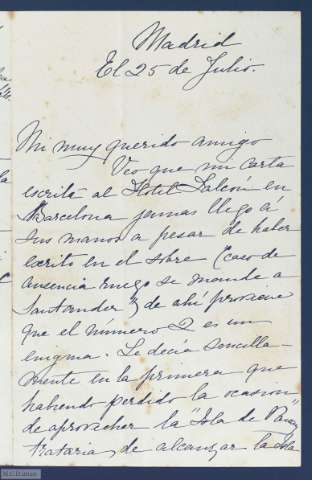 Madrid
El 25 de Julio.
Mi muy querido amigo
Veo que mi carta
escrita al Hotel Falcón en
Barcelona jamas llegó á
sus manos a pesar de haber
escrito en el sobre (caso de
ausencia ruego se mande a
Santander") de ahí proviene
que el número 2 es un
enigma. Le decía sencilla-
mente en la primera que
habiendo perdido la ocasion
de aprovechar la "Isla de Panay"
trataria de alcanzar la Isla